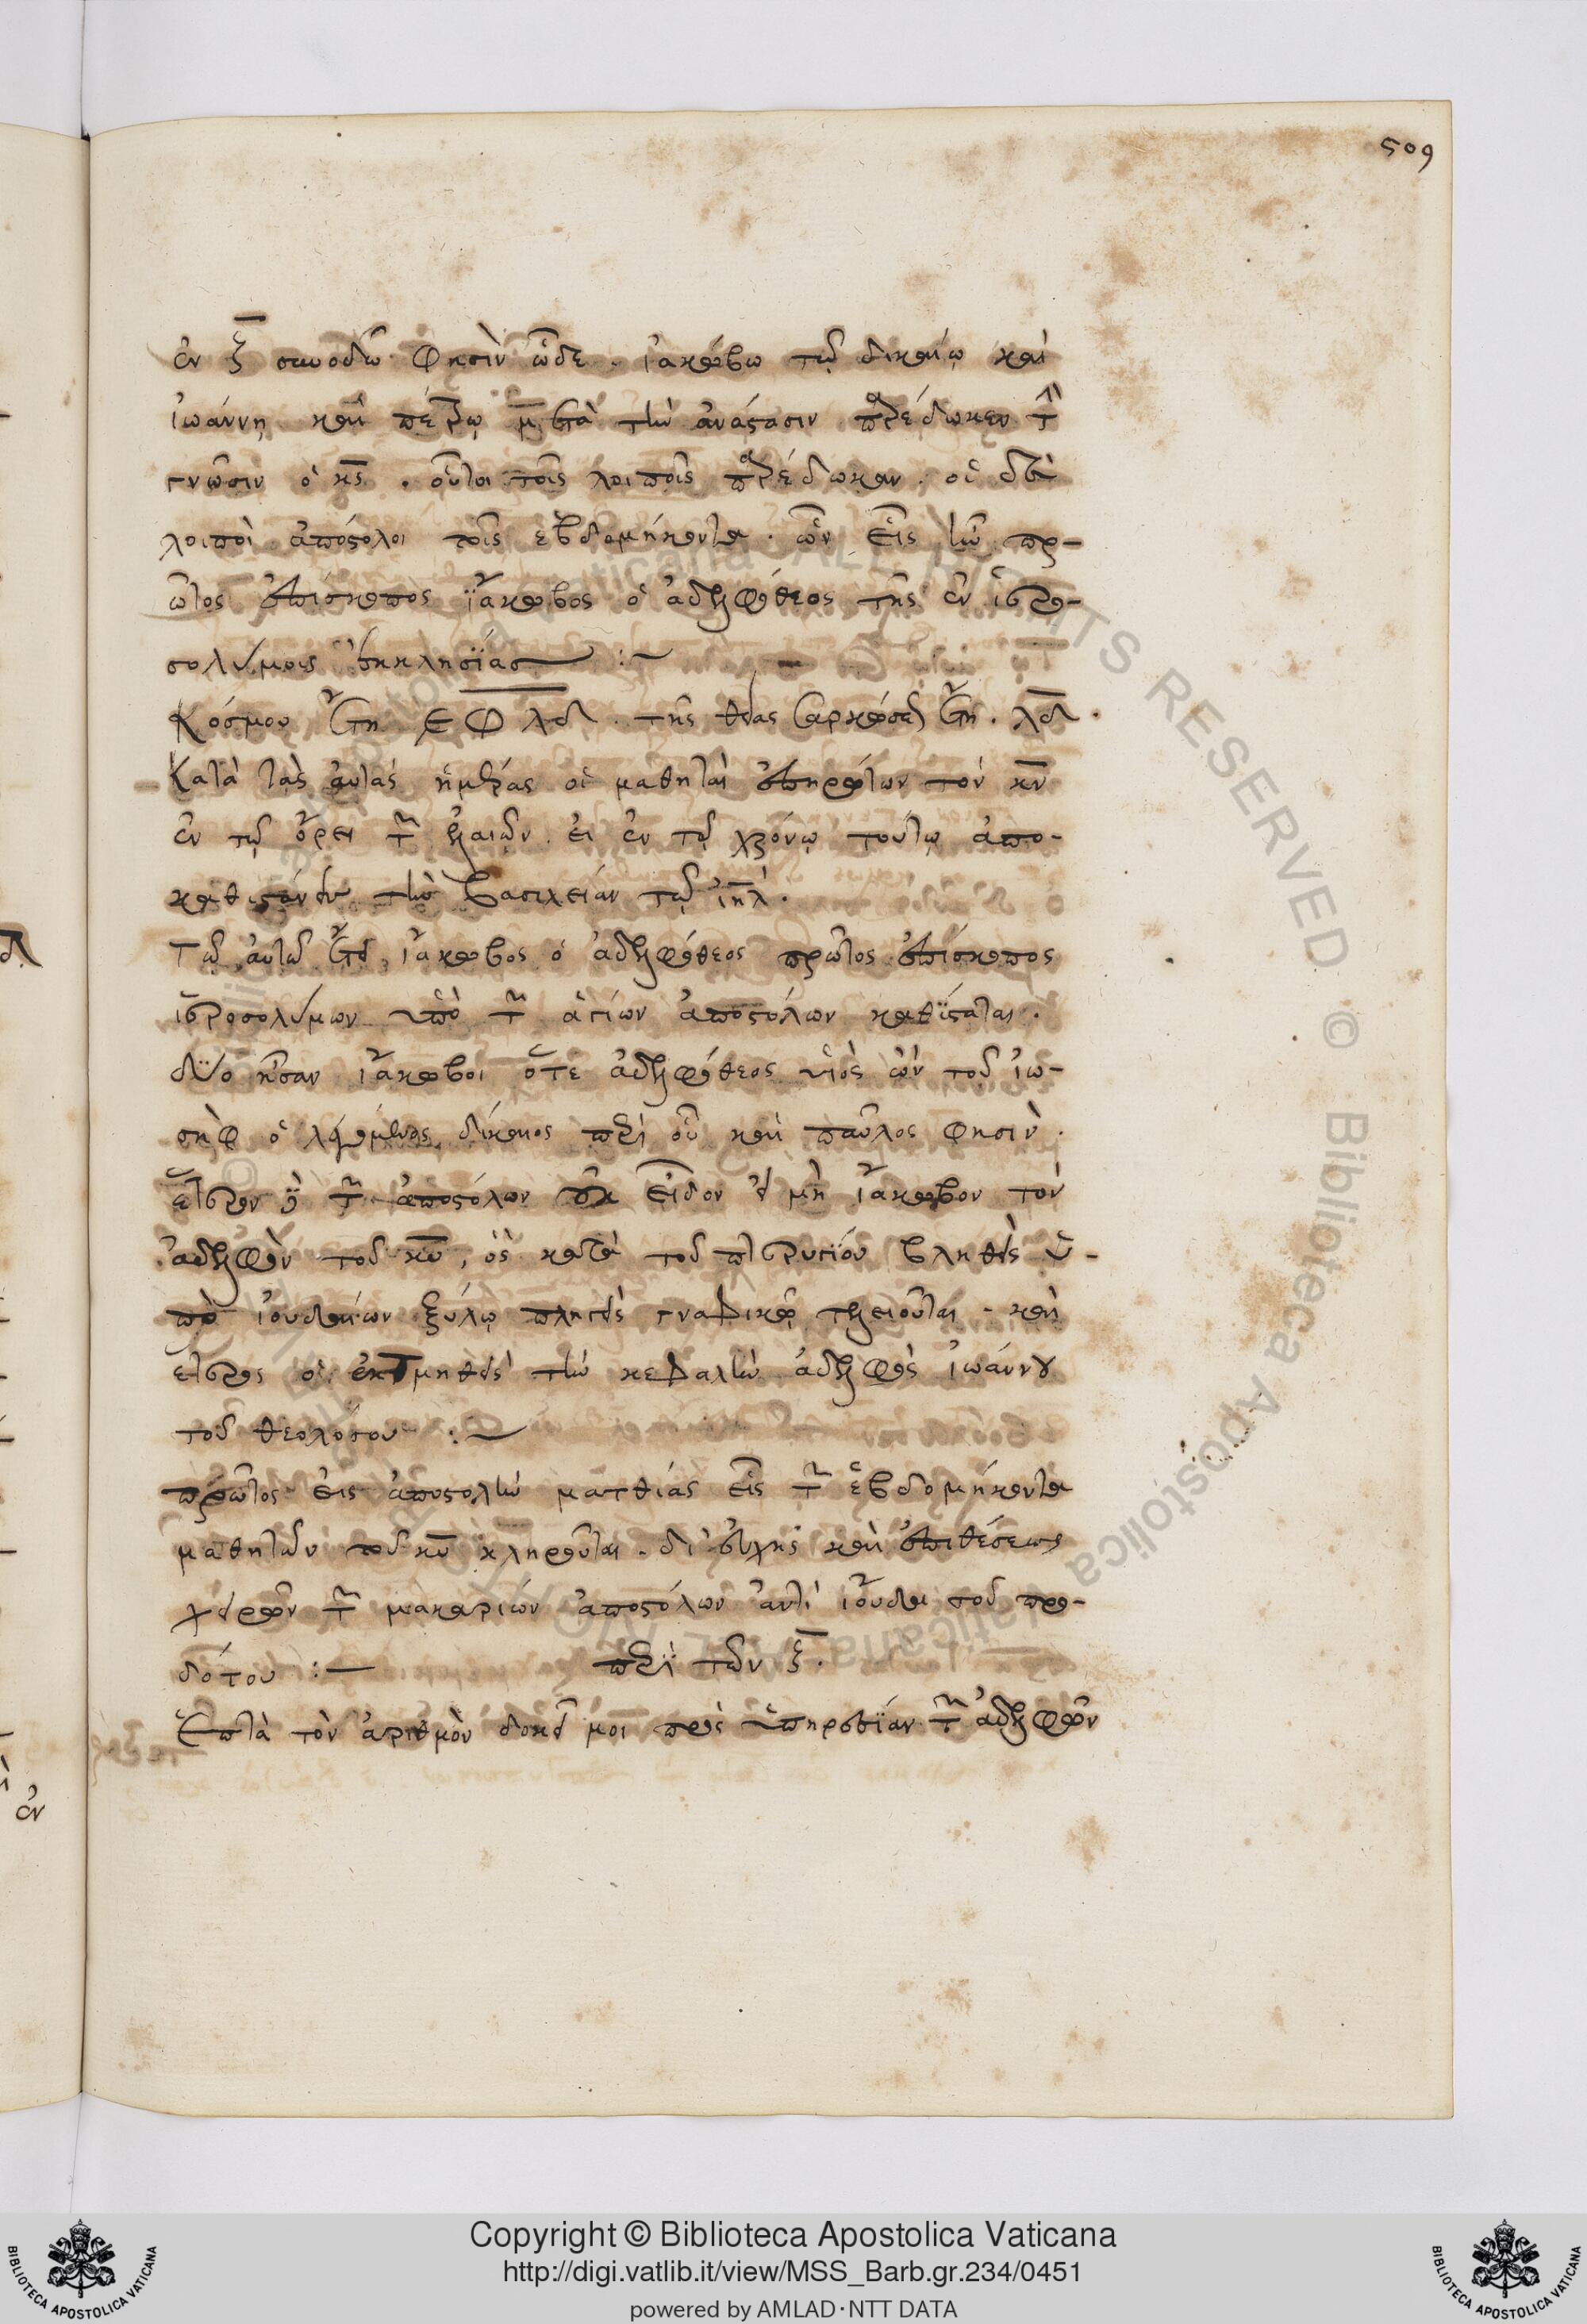 509
ἐν ξ̅ συνοδῶ φησὶν ὧδε. ἰακώβω τῷ δικαίῳ καὶ
ἰωάννῃ καὶ πέτρῳ μετὰ τὴν ἀνάστασιν παρέδωκεν τὴν
γνῶσιν ὁ κς̅. οὗτοι τοῖς λοιποῖς παρέδωκαν. οἱ δὲ
λοιποὶ ἀπόστολοι τοῖς ἑβδομήκοντα. ὧν εἷς ἦν πρ-
ῶτος ἐπίσκοπος ἰάκωβος ὁ ἀδελφόθεος τῆς ἐν ἱερο-
σολύμοις ἐκκλησίας :~
Κόσμου ἔτη ͵εφλδ. τῆς θείας σαρκώσεως ἔτη. λδ.
Κατὰ τὰς αὐτὰς ἡμέρας οἱ μαθηταὶ ἐπηρώτων τὸν κν̅
ἐν τῷ ὄρει τῶν ἐλαιῶν. εἰ ἐν τῷ χρόνῳ τούτῳ ἀπο-
καθιστάνει τὴν βασιλείαν τῷ ιηλ̅.
Τῷ αὐτῶ ἔτει ἰάκωβος ὁ ἀδελφόθεος πρῶτος ἐπίσκοπος
ἱεροσολύμων ὑπὸ τῶν ἁγίων ἀποστόλων καθίσταται.
δύο ἦσαν ἰάκωβοι ὅτε ἀδελφόθεος υἱὸς ὢν τοῦ ἰω-
σὴφ ὁ λεγόμενος δίκαιος περὶ οὗ καὶ παῦλος φησὶν.
ἕτερον δὲ τῶν ἀποστόλων οὐκ εἶδον εἰ μὴ ἰάκωβον τὸν
ἀδελφὸν τοῦ κυ̅, ὃς κατὰ τοῦ πτερυγίου βληθεὶς ὑ-
πὸ ἰουδαίων ξύλῳ πληγεὶς γναφικῷ τελειοῦται. καὶ
ἕτερος ὁ ἐκτμηθεὶς τὴν κεφαλὴν ἀδελφὸς ἰωάννου
τοῦ θεολόγου :~
πρῶτος εἰς ἀποστολὴν ματθίας εἷς τῶν ἑβδομήκοντα
μαθητῶν τοῦ κυ̅ κληροῦται. δι' εὐχῆς καὶ ἐπιθέσεως
χειρῶν τῶν μακαρίων ἀποστόλων ἀντὶ ἰούδα τοῦ προ-
δότου :— περὶ τῶν ξ̅.
Ἑπτὰ τὸν ἀριθμὸν δοκεῖ μοι πρὸς ὑπηρεσίαν τῶν ἀδελφῶν
ἐν
Copyright © Biblioteca Apostolica Vaticana
http://digi.vatlib.it/view/MSS_Barb.gr.234/0451
powered by AMLAD·NTT DATA